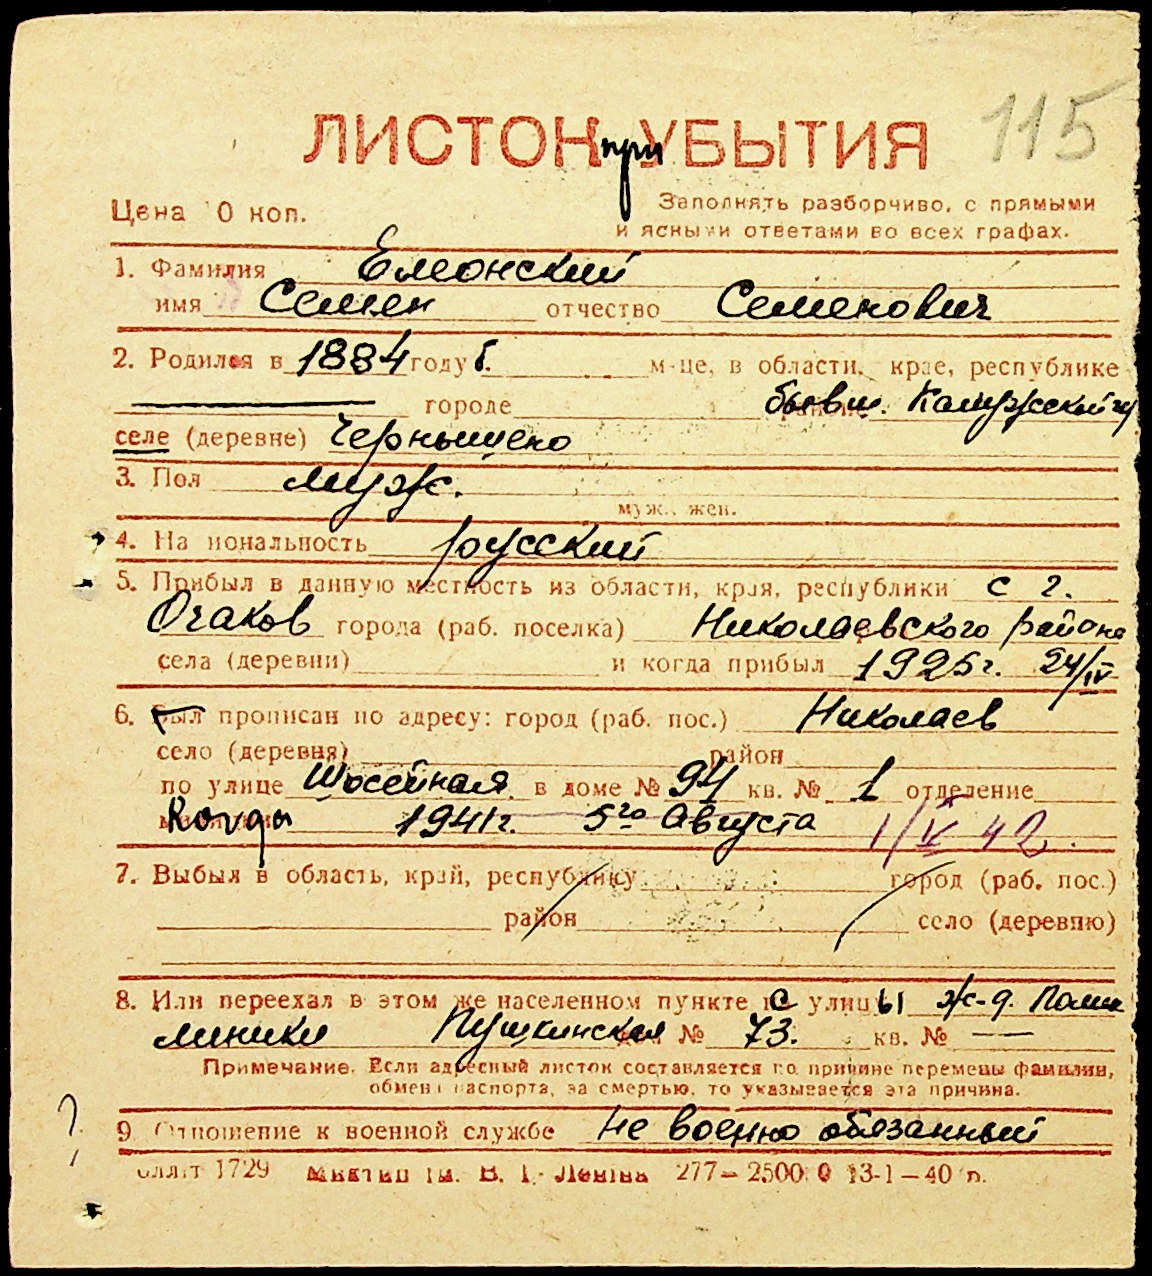 115
ЛИСТОК при УБЫТИЯ
Цена 0 коп.
Заполнять разборчиво, с прямыми
и ясными ответами во всех графах.
1. Фамилия Елеонский
имя Семен отчество Семенович
2. Родился в 1884 году г. м-це, в области, крае, республике
городе бывш. Калужской г.
селе (деревне) Чернышено
3. Пол муж.
муж., жен.
4. На иональность русский
5. Прибыл в данную местность из области, края, республики с г.
Очаков города (раб. поселка) Николаевского района
села (деревни) и когда прибыл 1925 г. 24/IV
6. был прописан по адресу: город (раб. пос.) Николаев
село (деревня) район
по улице Шосейная в доме № 94 кв. № 1 отделение
Когда 1941 г. 5го Августа 1/V 42.
7. Выбыл в область, край, республику город (раб. пос.)
район село (деревню)
8. Или переехал в этом же населенном пункте с улицы ж-д. Поли
клиники Пушкинская дом № 73. кв. № —
Примечание. Если адресный листок составляется по причине перемены фамилии,
обмена паспорта, за смертью, то указывается эта причина.
9 Отношение к военной службе не военно обязанный
? 1729 277—2500 13-1—40 п.